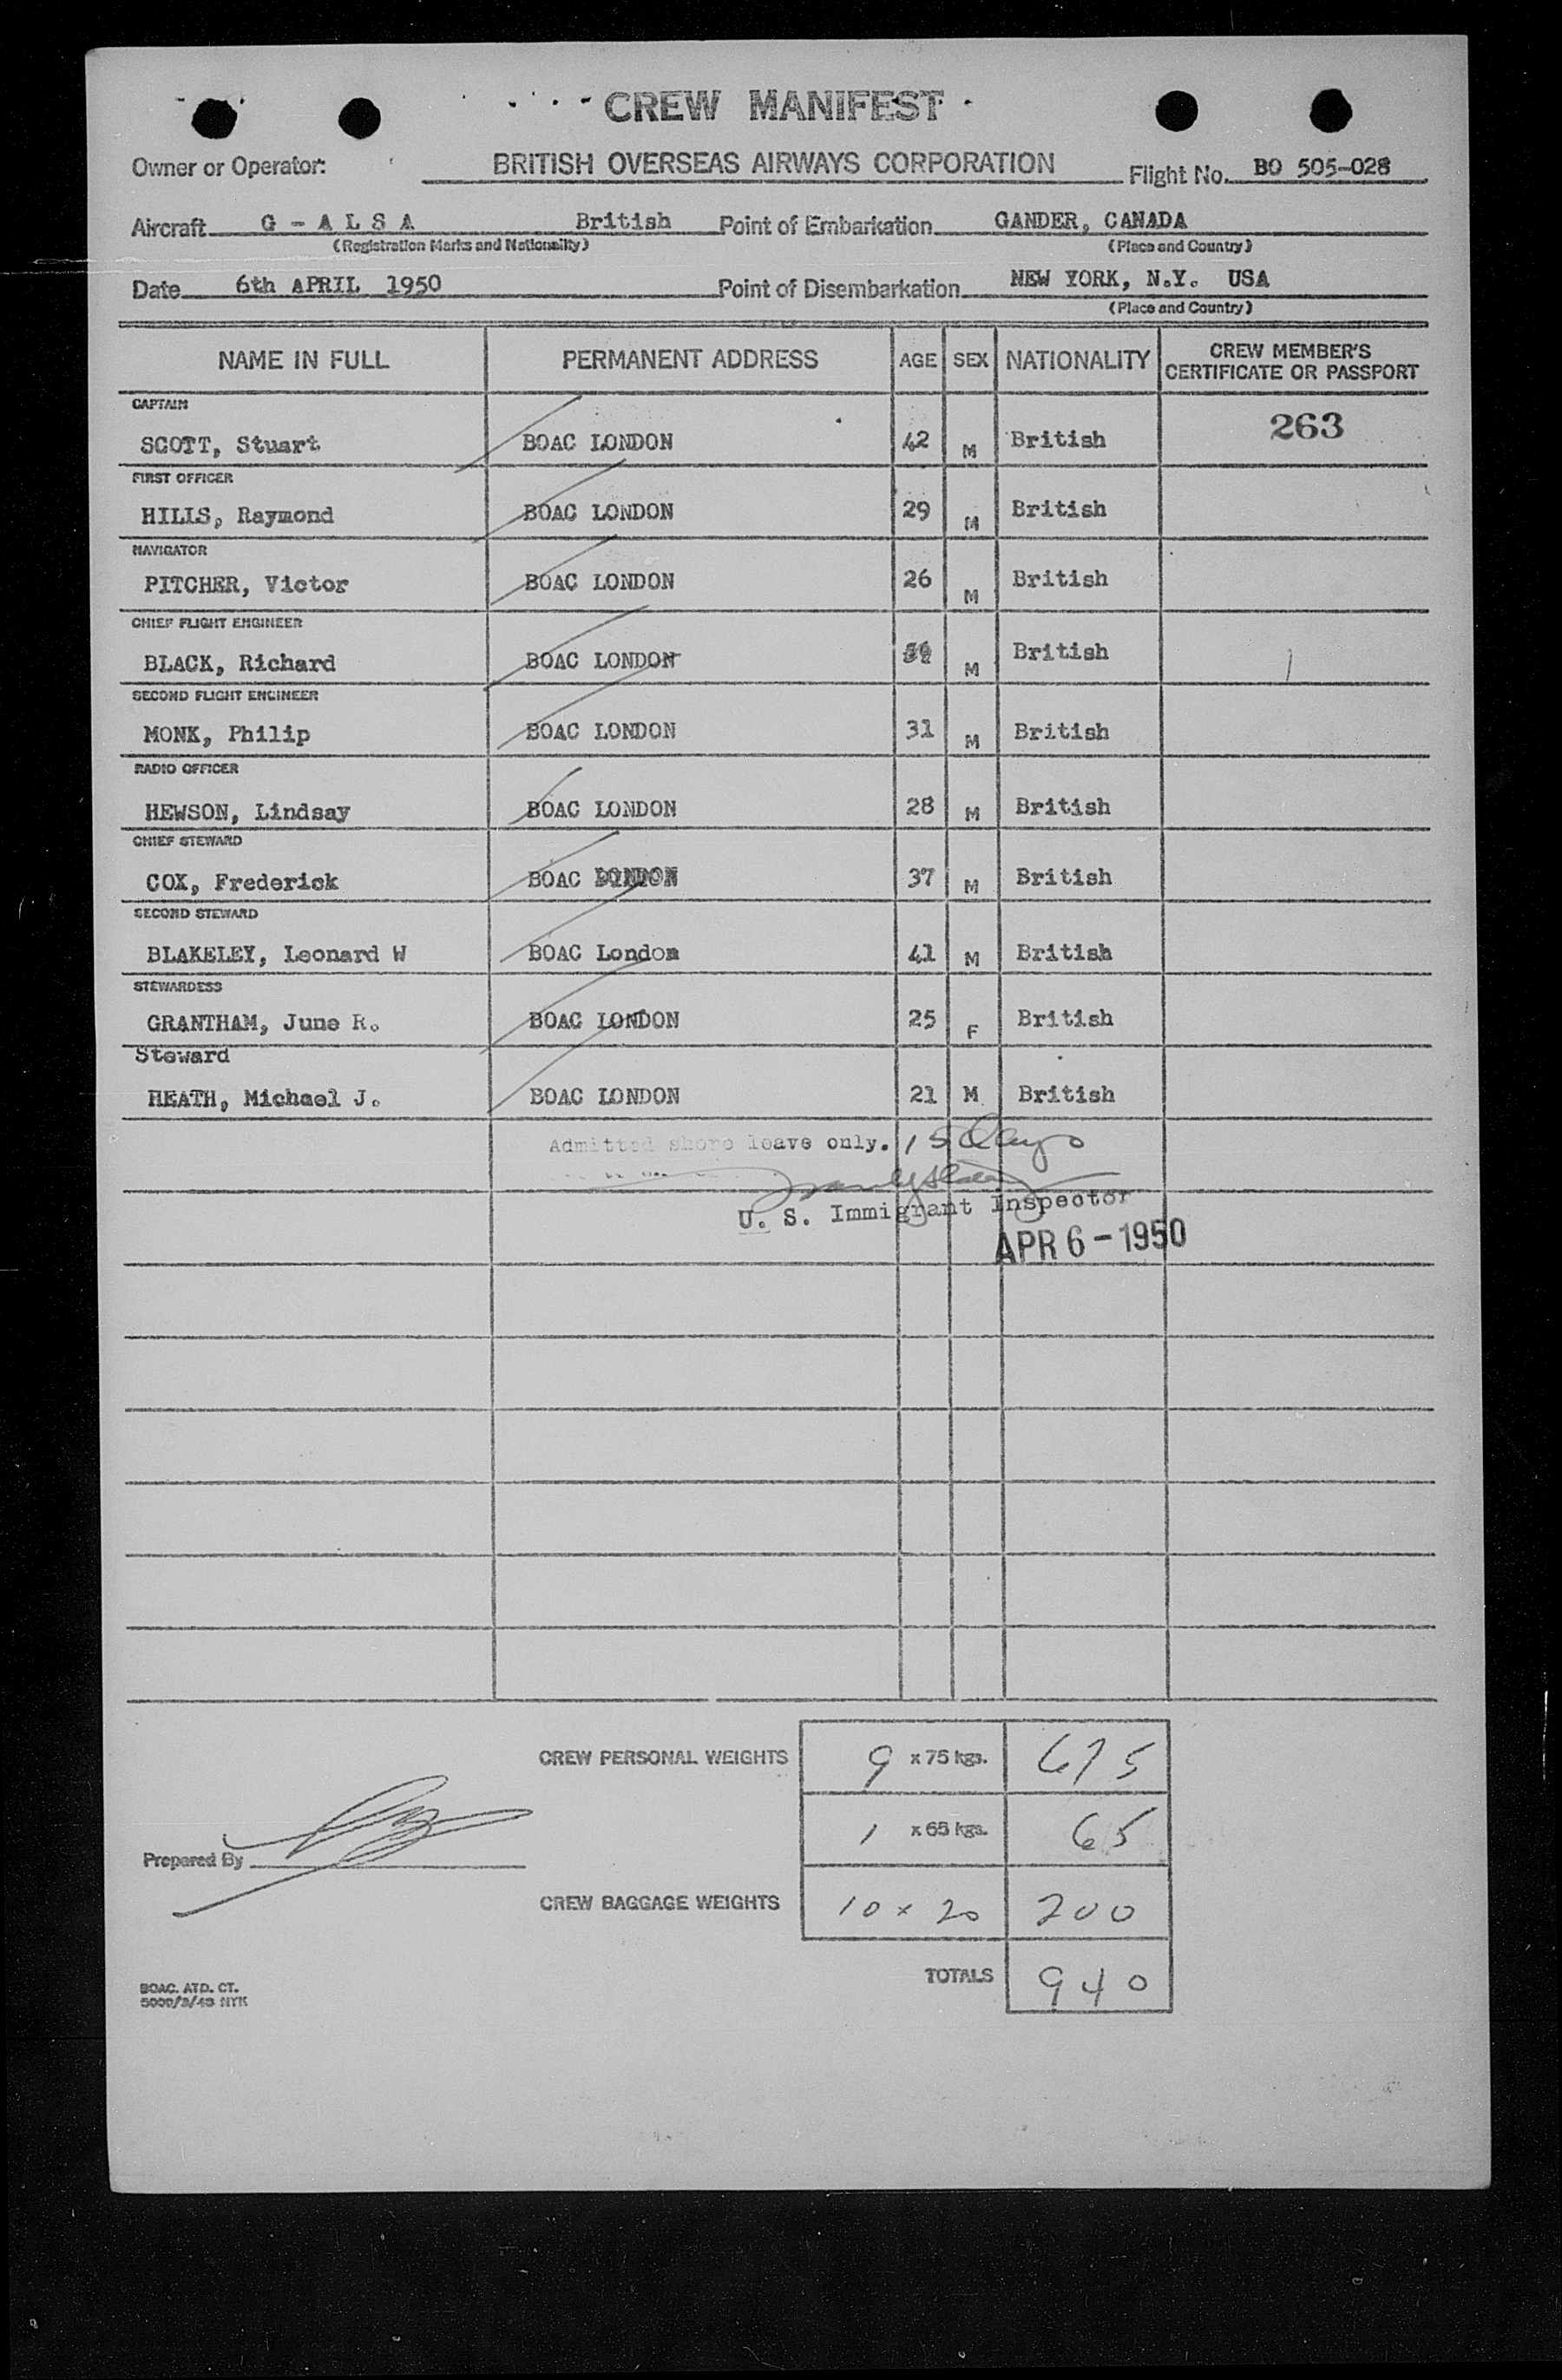 CREW MANIFEST
Owner or Operator: BRITISH OVERSEAS AIRWAYS CORPORATION Flight No. BO 505-028
Aircraft G - A L S A British Point of Embarkation GANDER, CANADA
(Registration Marks and Nationality) (Place and Country)
Date 6th APRIL 1950 Point of Disembarkation NEW YORK, N.Y. USA
(Place and Country)
NAME IN FULL PERMANENT ADDRESS AGE SEX NATIONALITY CREW MEMBER'S CERTIFICATE OR PASSPORT
CAPTAIN
SCOTT, Stuart BOAC LONDON 42 M British 263
FIRST OFFICER
HILLS, Raymond BOAC LONDON 29 M British
NAVIGATOR
PITCHER, Victor BOAC LONDON 26 M British
CHIEF FLIGHT ENGINEER
BLACK, Richard BOAC LONDON M British
SECOND FLIGHT ENGINEER
MONK, Philip BOAC LONDON 31 M British
RADIO OFFICER
HEWSON, Lindsay BOAC LONDON 28 M British
CHIEF STEWARD
COX, Frederick BOAC LONDON 37 M British
SECOND STEWARD
BLAKELEY, Leonard W BOAC London 41 M British
STEWARDESS
GRANTHAM, June R. BOAC LONDON 25 F British
Steward
HEATH, Michael J. BOAC LONDON 21 M British
Admitted shore leave only. 15 days
U. S. Immigrant Inspector
APR 6-1950
CREW PERSONAL WEIGHTS 9 x 75 kgs. 675
1 x 65 kgs. 65
Prepared By
CREW BAGGAGE WEIGHTS 10 x 20 200
TOTALS 940
BOAC. ATD. CT.
5000/3/48 NYK